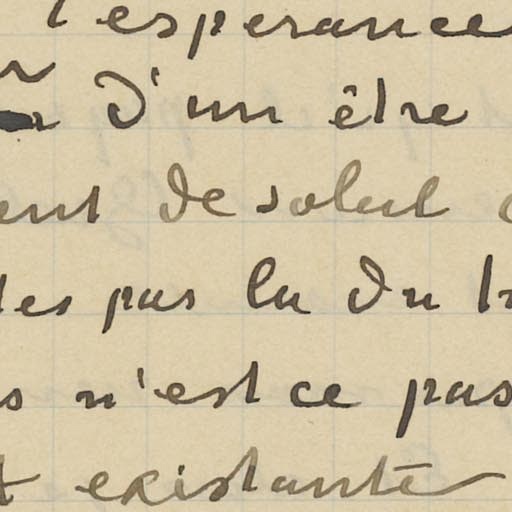 l'esperance
d'un être
ent de soleil
tes pas lu du
s n'est ce pas
t existante